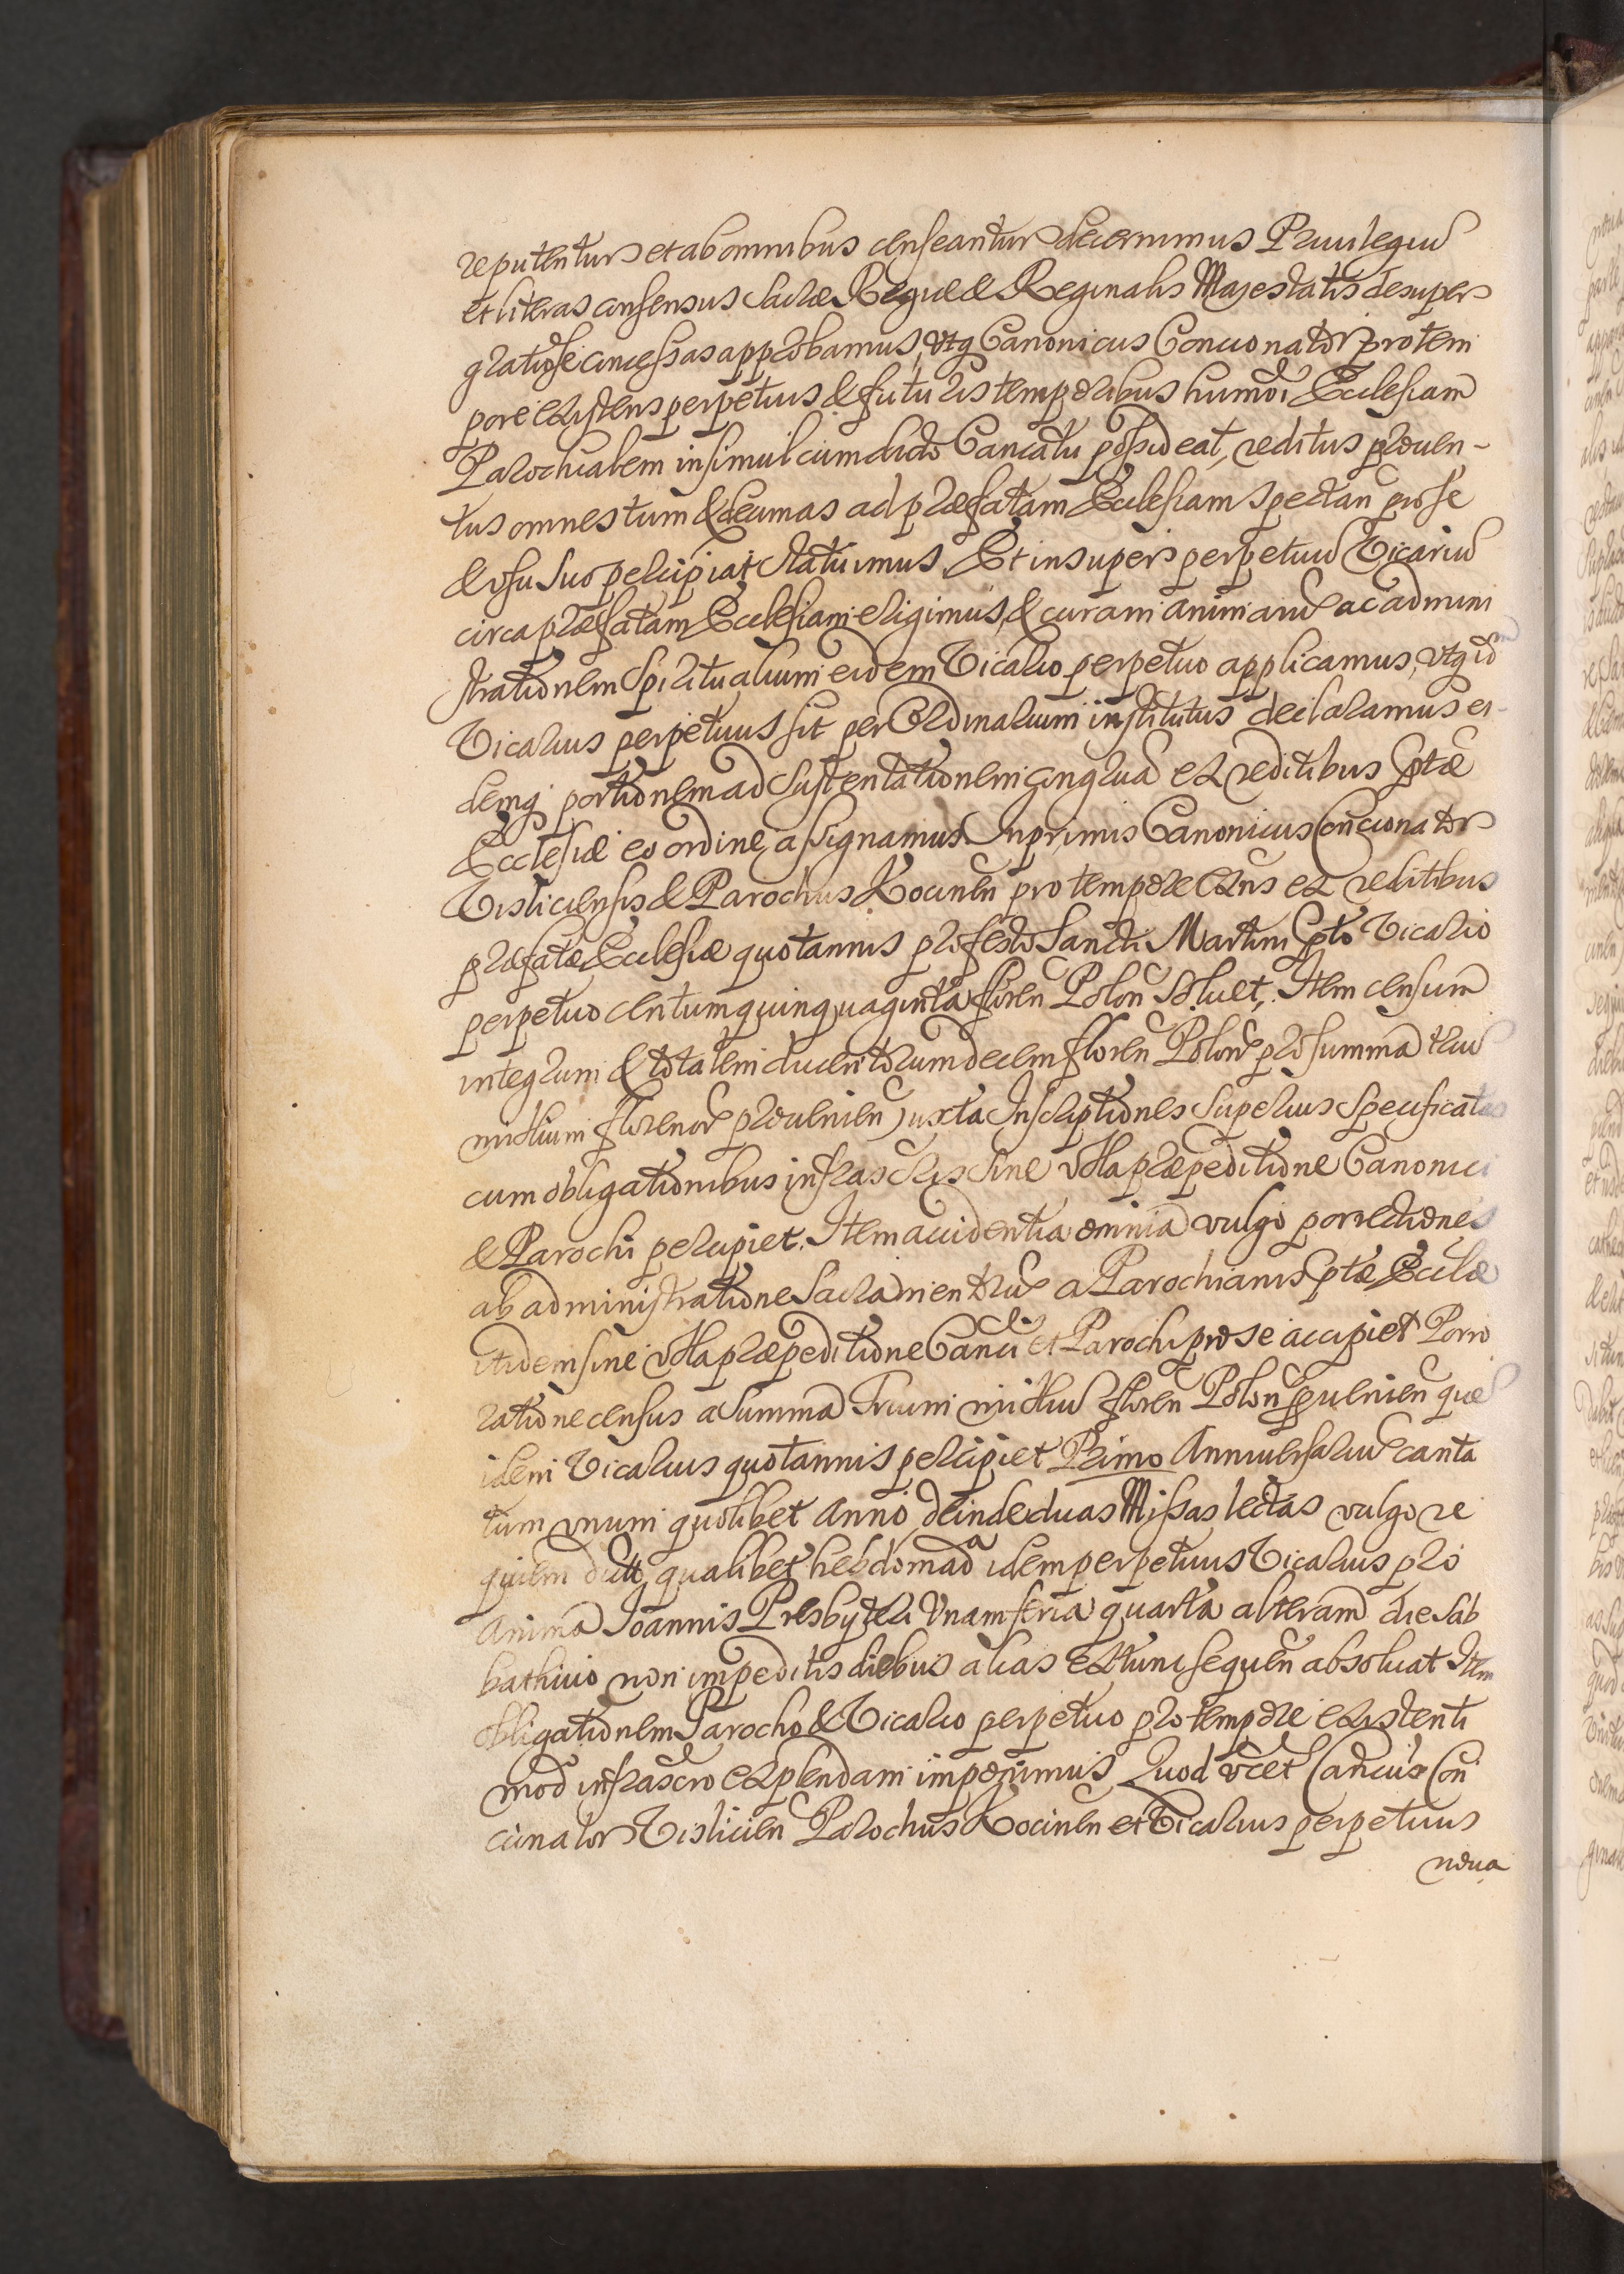 reputentur et ab omnibus censeantur decernimus Priuilegiũ
et literas consensus Sacræ Regiæ & Reginalis Majestatis desuper
gratiose concessas approbamus, vtq Canonicus Concionator pro tem
pore existens perpetuus & futuris temporibus humõi Ecclesiam
Parochialem insimul cum dicto Cancatu possideat, reditus prouen-
tus omnes tum & decimas ad præfatam Ecclesiam spectan̄ pro se
& vsu suo percipiat statuimus. Et insuper perpetuũ Vicariũ
circa præfatam Ecclesiam eligimus, & curam animarũ ac admini
strationem Spiritualium eidem Vicario perpetuo applicamus, vtq id
Vicarius perpetuus sit per Ordinarium institutus declaramus ei-
demq portionem ad sustentationem congruã ex reditibus Sptæ
Ecclesiæ eo ordine assignamus. Inprimis Canonicus Conciona tor
Visliciensis & Parochus Kocinen̄ pro tempore exñs ex reditibus
præfatæ Ecclesiæ quotannis pro festo Sancti Martini Spto Vicario
perpetuo centum quinquaginta floren̄ Polon̄ soluet, Item censum
integrum & totalem ducentorum decem floren̄ Polon̄ pro summa triũ
millium florenor̄ prouenien̄ juxta Inscriptiones superius specificatas
cum obligationibus infrascris sine vlla præpeditione Canonici
& Parochi percipiet. Item accidentia omnia vulgo porrectiones
ab administratione Sacramentorũ a Parochianis Sptæ Ecclæ
itidem sine vlla præpeditione Canci et Parochi pro se accipiet Porro
ratione census a summa Trium milliũ floren̄ Polon̄ puenien̄ quẽ
idem Vicarius quotannis percipiet Primo Anniuersariũ canta
tum vnum quolibet Anno, deinde duas Missas lectas vulgo re
quiem dictt qualibet hebdomada idem perpetuus Vicarius pro
anima Joannis Presbyteri Vnam feria quarta alteram die Sab
bathiuo non impeditis diebus alias ex tunc sequen̄ absoluat Item
obligationem Parocho & Vicario perpetuo pro tempore existenti
mod infrascro explendam imponimus Quod vcet Cancus Con
cionator Vislicien̄ Parochus Kocinen̄ et Vicarius perpetuus
noua